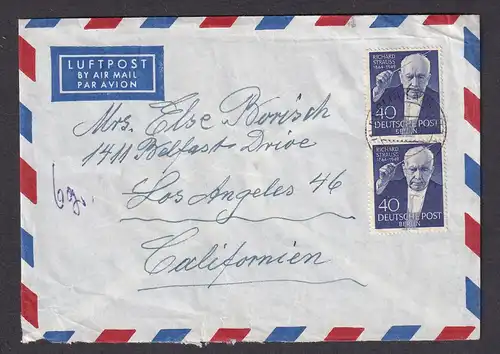 LUFTPOST
BY AIR MAIL
PAR AVION
RICHARD
STRAUSS
1864-1949
40
DEUTSCHE POST
BERLIN
Mrs. Else Borisch
1411 Belfast Drive
Los Angeles 46
Californien
RICHARD
STRAUSS
1864-1949
40
DEUTSCHE POST
BERLIN